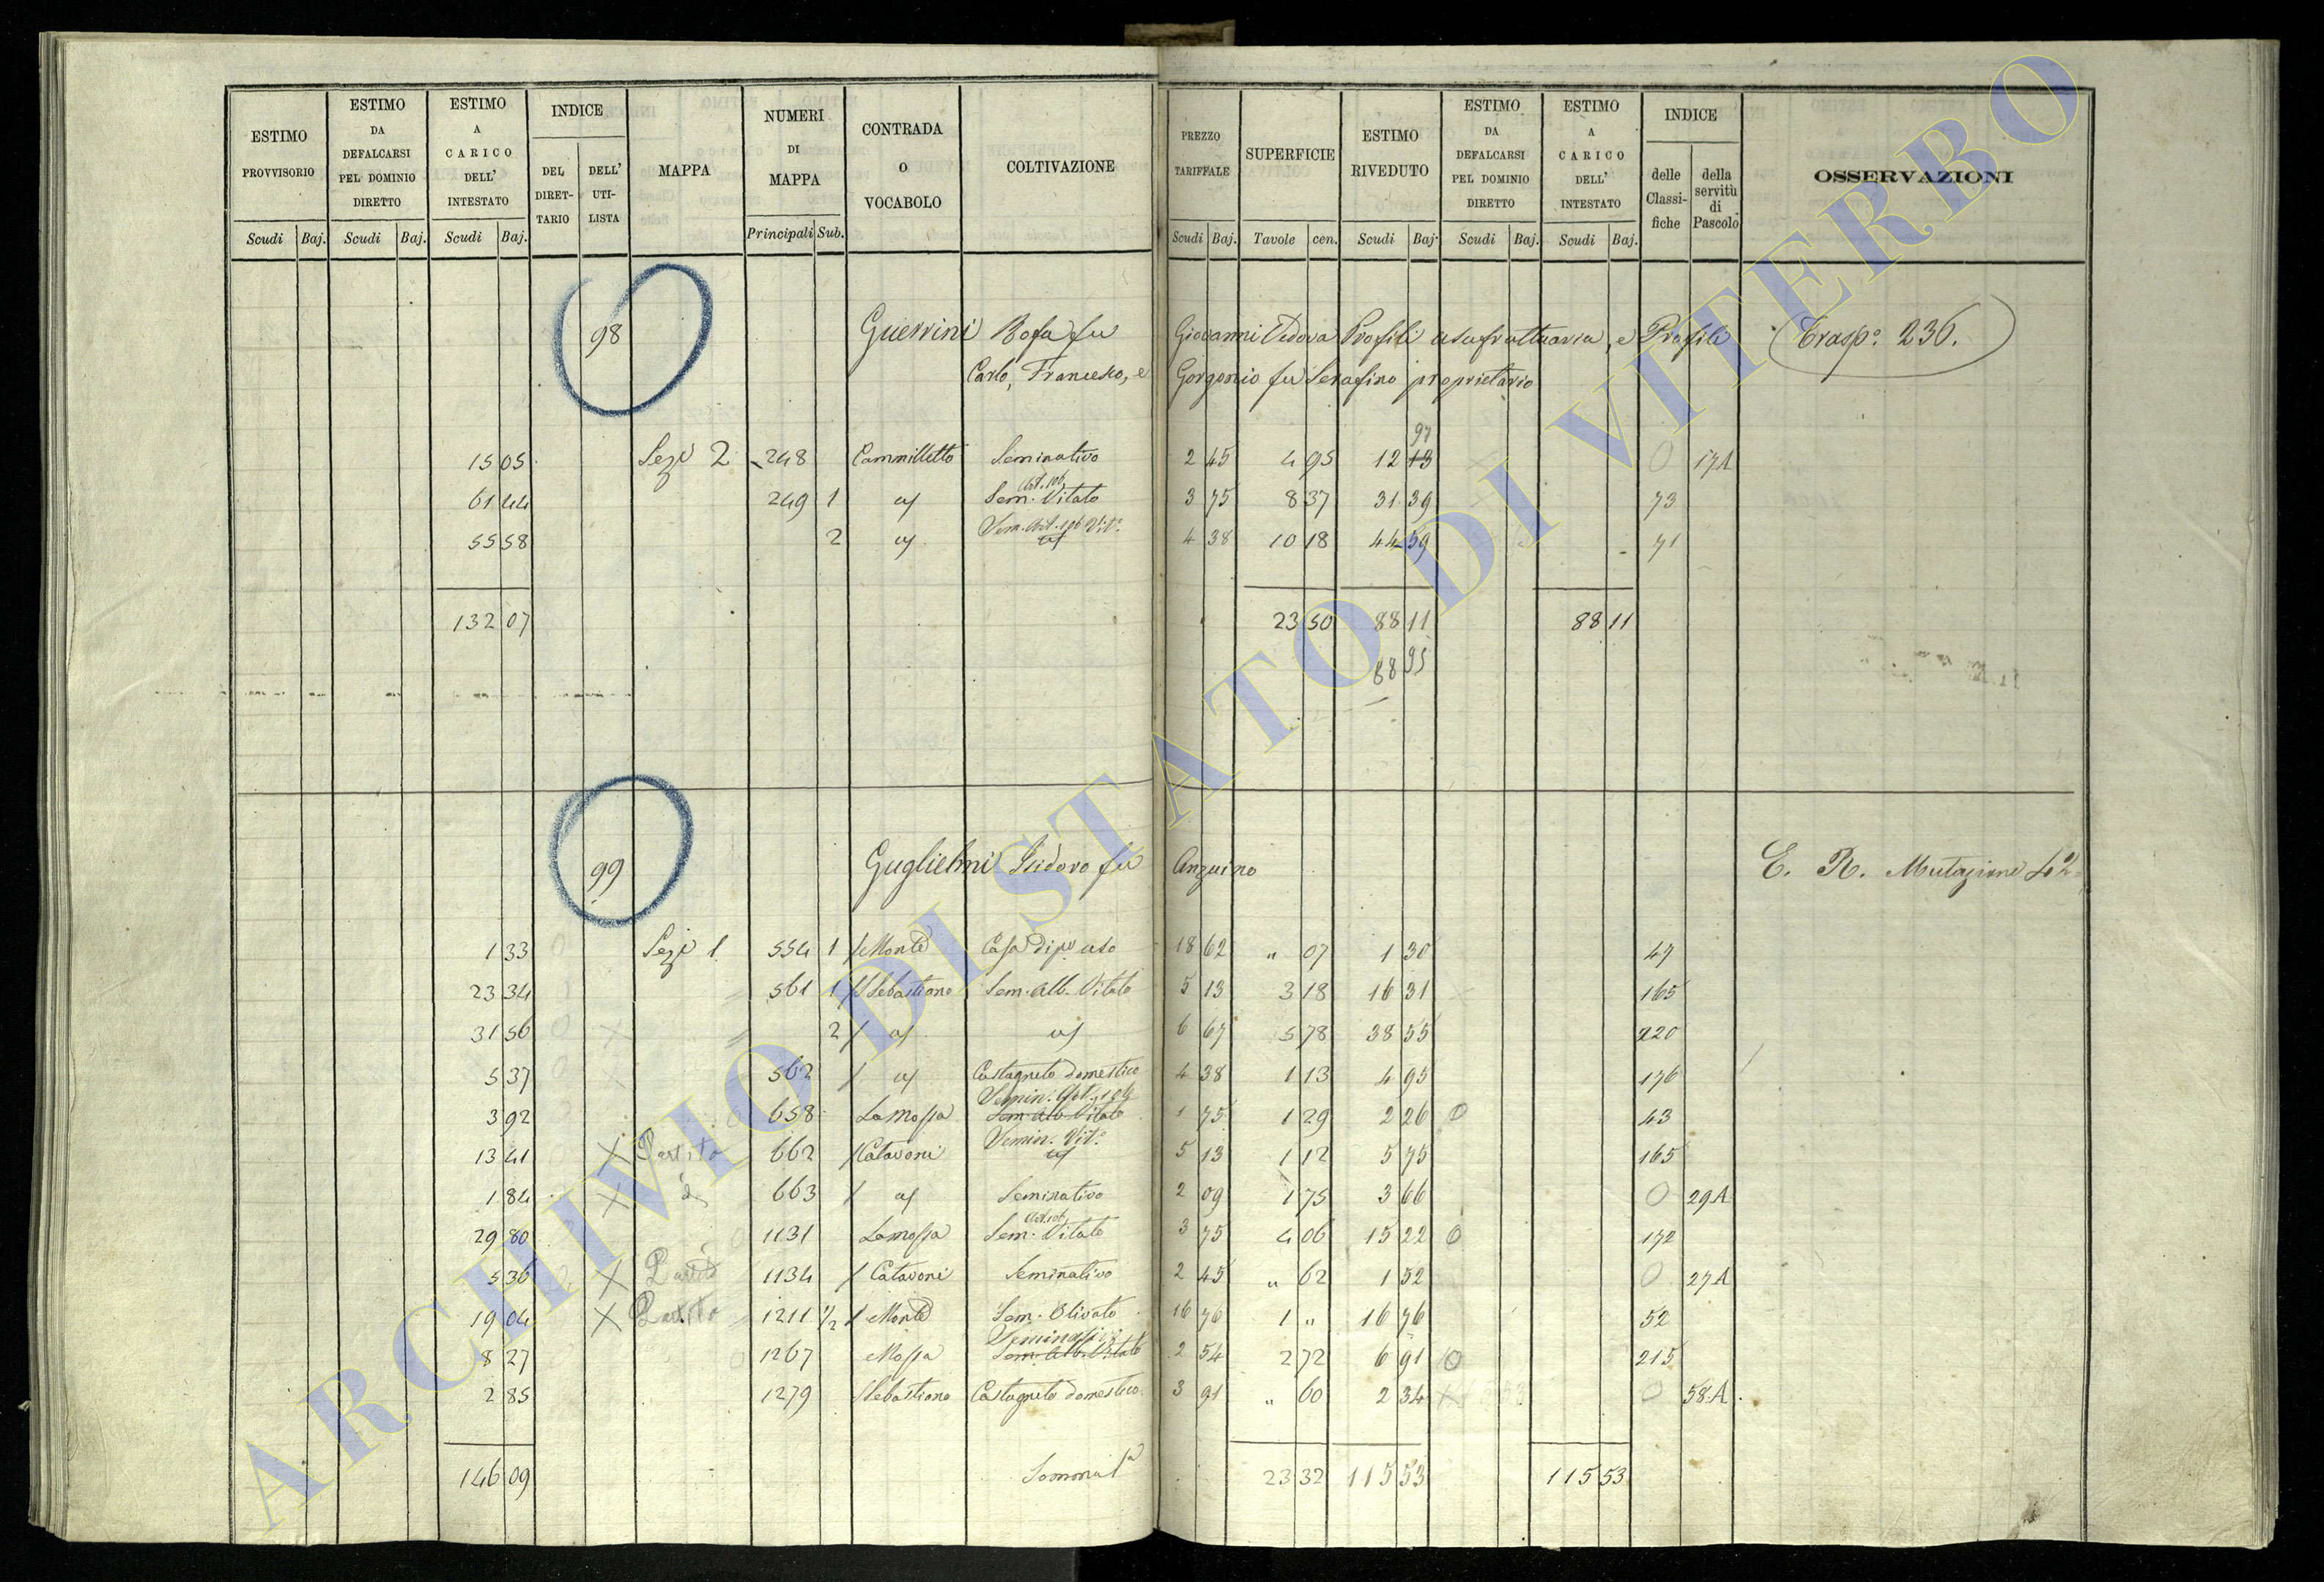 ESTIMO PROVVISORIO | ESTIMO DA DEFALCARSI PEL DOMINIO DIRETTO | ESTIMO A CARICO DELL' INTESTATO | INDICE DEL DIRETTARIO | DELL' UTILISTA | MAPPA | NUMERI DI MAPPA | CONTRADA O VOCABOLO | COLTIVAZIONE | PREZZO TARIFFALE | SUPERFICIE | ESTIMO RIVEDUTO | ESTIMO DA DEFALCARSI PEL DOMINIO DIRETTO | ESTIMO A CARICO DELL' INTESTATO | INDICE delle Classifiche | della servitù di Pascolo | OSSERVAZIONI
Scudi Baj. Scudi Baj. Scudi Baj. Principali Sub. Scudi Baj. Tavole cen. Scudi Baj. Scudi Baj. Scudi Baj.
98 Guerrini Rosa fu Giovanni Vedova Profili usufruttuaria, e Profili Trasp.o 236.
Carlo, Francesco, e Gorgonio fu Serafino proprietario
97
15 05 Sez.e 2 248 Cammilletto Seminativo 2 45 4 95 12 13 0 17A
Art. 106
61 44 249 1 " Sem. Vitato 3 75 8 37 31 39 73
Sem. Art. 106 Vit.o
55 58 2 " " 4 38 10 18 44 59 71
132 07 23 50 88 11 88 11
88 95
99 Guglielmi Isidoro fu Anzuino E. R. Mutazione 42
1 33 Sez.e 1 554 1 Monte Casa di p.o uso 18 62 " 07 1 30 47
23 34 561 1 S Sebastiano Sem. Alb. Vitato 5 13 3 18 16 31 165
31 56 2 " " 6 67 5 78 38 55 220
5 37 562 " Castagneto domestico 4 38 1 13 4 95 176
Semin. Art. 106
3 92 658 La Mossa Sem. Alb. Vitato 1 75 1 29 2 26 0 43
Semin. Vit.o
13 41 X Partito 662 Catavoni " 5 13 1 12 5 75 165
1 84 X 663 " Seminativo 2 09 1 75 3 66 0 29A
Art. 106
29 80 1131 La mossa Sem. Vitato 3 75 4 06 15 22 0 172
5 36 X Partito 1134 Catavoni Seminativo 2 45 " 62 1 52 0 27A
19 04 X Partito 1211 1/2 Monte Sem. Olivato 16 76 1 " 16 76 52
Seminativo
8 27 1267 Mossa Sem. Alb. Vitato 2 54 2 72 6 91 0 215
2 85 1279 S Sebastiano Castagneto domestico 3 91 " 60 2 34 0 58.A
146 09 Somma 23 32 115 53 115 53
ARCHIVIO DI STATO DI VITERBO